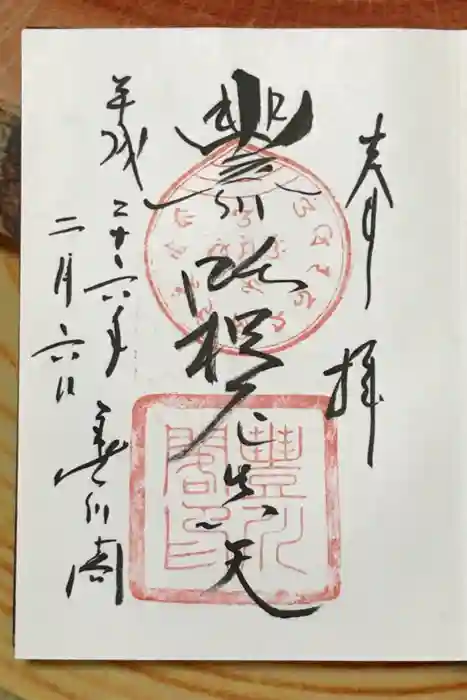 奉拝
豊川吒枳尼真天
豐川
閣印
平成二十六年
二月六日
豊川閣